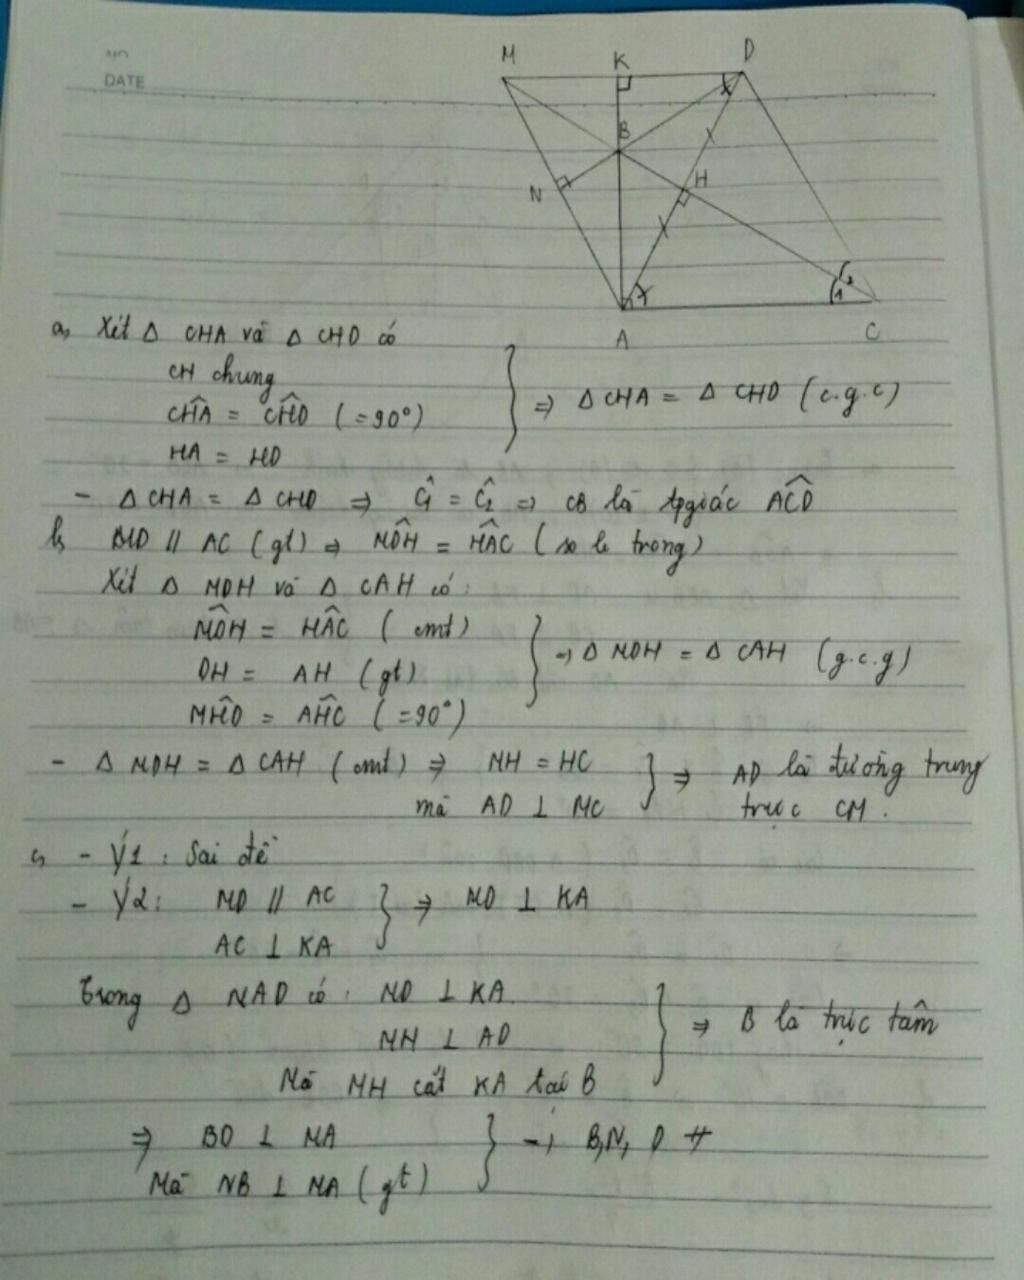 NO
DATE
M K D
B
N H
2
1
A C
a, Xét Δ CHA và Δ CHD có
CH chung
CHA = CHD (=90°)
HA = HD
} ⇒ Δ CHA = Δ CHD (c.g.c)
- Δ CHA = Δ CHD ⇒ Ĉ1 = Ĉ2 ⇒ CB là tpgiác ACD
b, MD // AC (gt) ⇒ MDH = HAC (so le trong)
Xét Δ MDH và Δ CAH có:
MDH = HAC (cmt)
DH = AH (gt)
MHD = AHC (=90°)
} ⇒ Δ MDH = Δ CAH (g.c.g)
- Δ MDH = Δ CAH (cmt) ⇒ MH = HC
mà AD ⊥ MC
} ⇒ AD là đường trung
trực CM.
c, - Ý1: Sai đề
- Ý2: MD // AC
AC ⊥ KA
} ⇒ MD ⊥ KA
Trong Δ MAD có: MD ⊥ KA
MH ⊥ AD
Mà MH cắt KA tại B
} ⇒ B là trực tâm
⇒ BD ⊥ MA
Mà NB ⊥ MA (gt)
} → B, N, D #